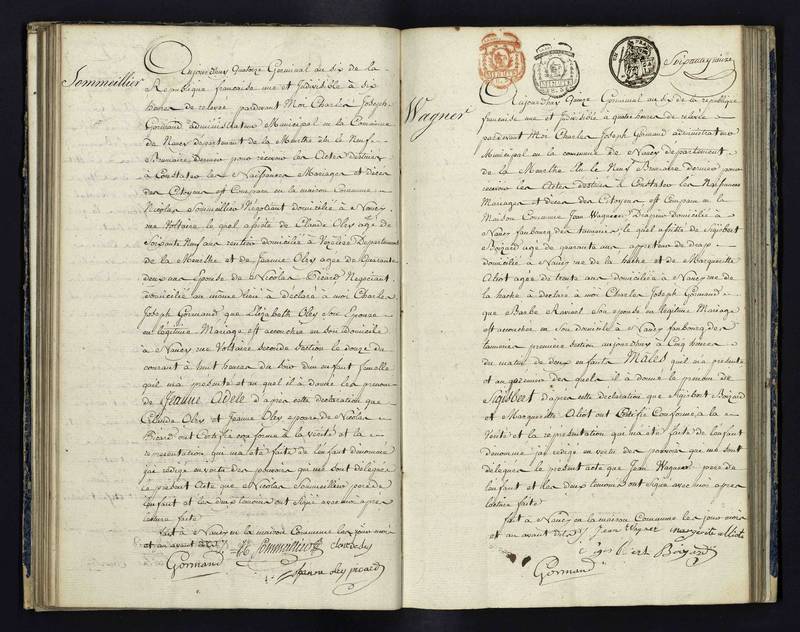 Sommeillier
Aujourdhuy Quatorze Germinal an six de la
Republique francoise une et Indivisible à six
heures de relevée pardevant Moi Charles Joseph
Gormand administrateur Municipal en la Commune
de Nancy Departement de la Meurthe élu le Neuf
Brumaire dernier pour recevoir les Actes destinés
à Constater les Naissances Mariages et Décès
des Citoyens est Comparu en la maison Commune
Nicolas Sommeillier Négotiant domicilié à Nancy
rue Voltaire, le quel assisté de Claude Oley agé de
Soixante Neuf ans rentier domicilié à Departement
de la Meurthe et de Jeanne Oley agée de
deux ans Epouse de Nicolas Picard Negociant
domiciliée au même lieu à déclaré à moi Charles
Joseph Gormand, que Elizabeth Oley Son Epouse
en légitime Mariage est accouchée en son domicile
à Nancy rue Voltaire seconde Section le douze du
courant à huit heures du Soir d'un enfant femelle
quil ma presenté et au quel il à donné les prenoms
de Jeanne Adele d'après cette déclaration que
Claude Oley et Jeanne Oley epouse de Nicolas
Picard ont Certifié conforme à la vérité et la
representation qui ma été faite de l'enfant denommé
jai redigé en vertu des pouvoirs qui me sont délégués
le présent Acte que Nicolas Sommeillier père de
l'enfant et les deux temoins ont Signé avec moi après
lecture faite
fait à Nancy en la maison Commune les jour mois
et an avant dits
Sommeillier
Gormand
Jeanne oley picard
Wagner
Aujourdhuy Quinze Germinal an six de la république
francoise une et indivisible à quatre heures de relevée
pardevant Moi Charles Joseph Gormand administrateur
Municipal en la commune de Nancy departement
de la Meurthe élu le Neuf Brumaire dernier pour
recevoir les Actes destinés à Constater les Naissances
Mariages et décès des Citoyens est Comparu en la
Maison Commune Jean Wagner Drapier domicilié à
Nancy faubourg des tanneries, le quel assisté de Sigisbert
Boizard agé de quarante ans appreteur de drap
domicilié à Nancy rue de la hache et de Marguerite
Aliot agée de trente ans domiciliée à Nancy rue de
la hache à déclaré à moi Charles Joseph Gormand
que Barbe Son epouse en légitime Mariage
est accouchée en Son domicile à Nancy faubourg des
tanneries première Section aujourdhuy à Cinq heures
du matin de deux enfants Males quil ma presenté
et au des quels il à donné le prenom de
Sigisbert d'après cette déclaration que Sigisbert Boizard
et Marguerite Aliot ont Certifié Conforme à la
Vérité et la représentation qui ma été faite de l'enfant
denommé jai redigé en vertu des pouvoirs qui me sont
délégués le présent acte que Jean Wagner père de
l'enfant et les deux temoins ont Signé avec moi après
lecture faite
fait à Nancy en la maison Commune les jour mois
et an avant dits Jean Wagner
Boizard
Gormand